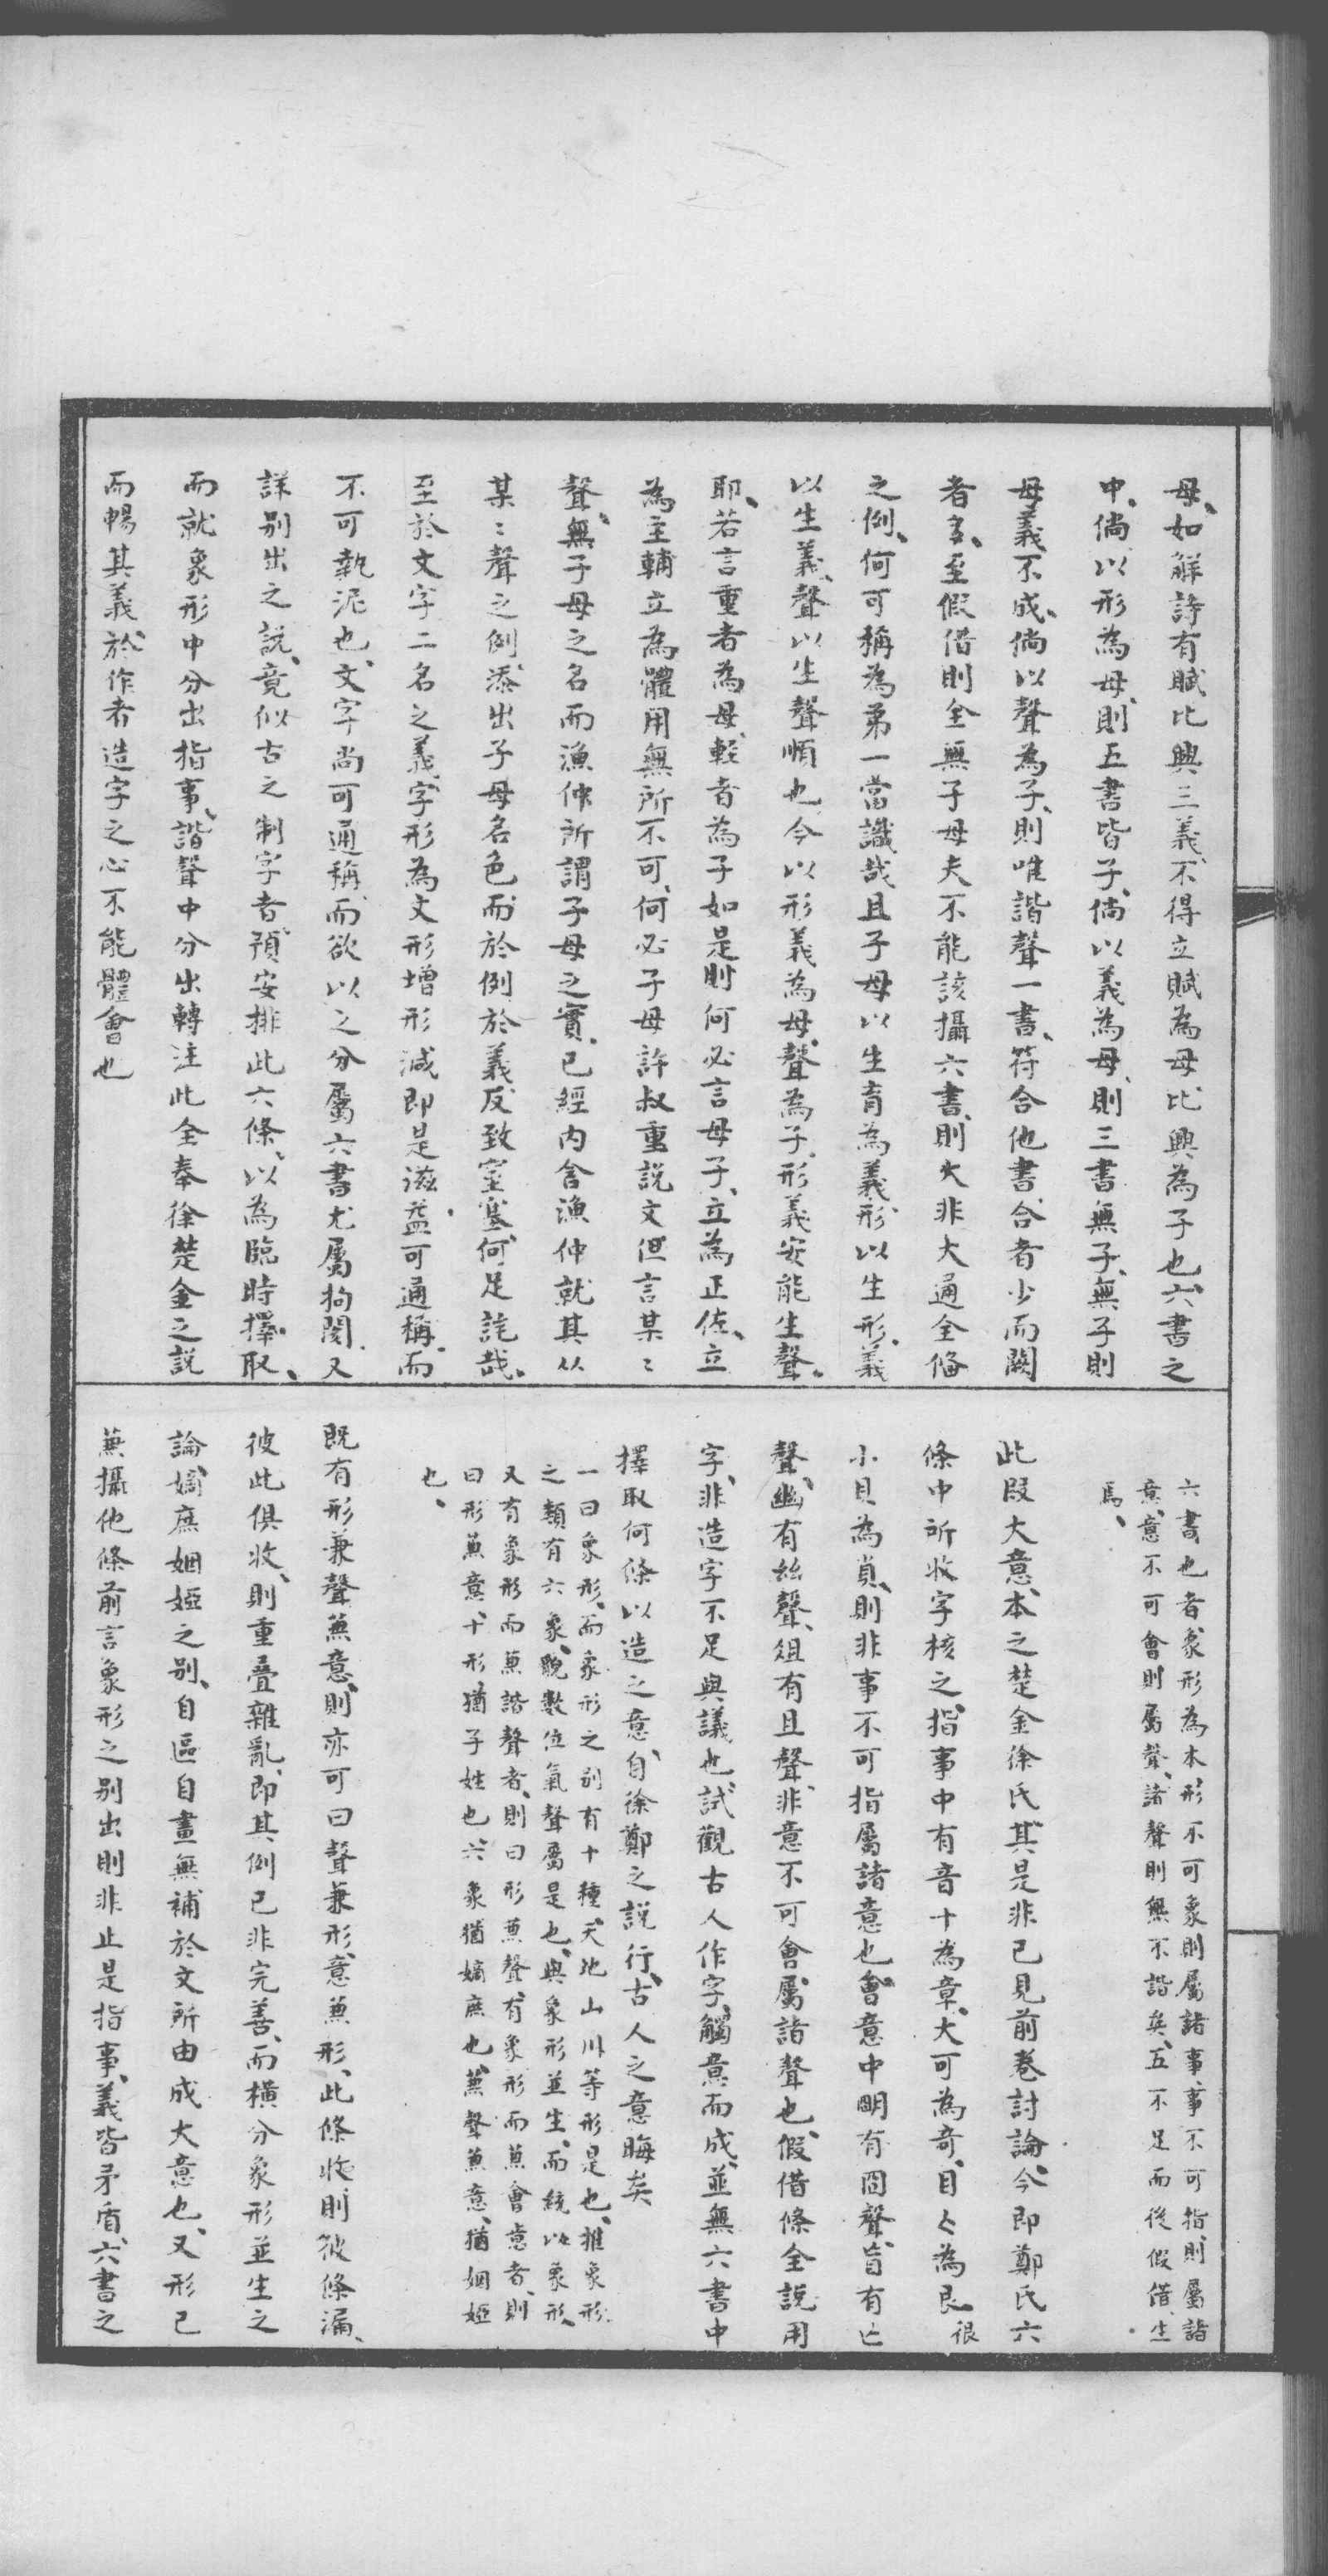 母、如解詩有賦比興三義、不得立賦為母、比興為子也、六書之
中、倘以形為母、則五書皆子、倘以義為母、則三書無子、無子則
母義不成、倘以聲為子、則唯諧聲一書、符合他書、合者少而闕
者多、至假借則全無子母夫不能該攝六書、則大非大通全俻
之例、何可稱為第一當識哉且子母以生育為義、形以生形、義
以生義、聲以生聲順也、今以形義為母、聲為子、形義安能生聲、
耶、若言重者為母、輕者為子如是則何必言母子、立為正佐、立
為主輔立為體用無所不可、何必子母許叔重說文但言某〻
聲、無子母之名而漁仲所謂子母之實、已經內含漁仲就其从
某〻聲之例添出子母名色而於例於義反致窒塞、何足詫哉、
至於文字二名之義、字形為文形增形減即是滋益、可通稱、而
不可執泥也、文字尚可通稱、而欲以之分屬六書尤屬拘閡、又
詳別出之說、竟似古之制字者、預安排此六條、以為臨時擇取、
而就象形中分出指事、諧聲中分出轉注此全奉徐楚金之說
而暢其義、於作者造字之心不能體會也
六書也者、象形為本、形不可象則屬諸事、事不可指、則屬諸
意、意不可會則屬聲、諸聲則無不諧矣、五不足而後假借、生
焉、
此段大意、本之楚金徐氏、其是非已見前卷討論、今即鄭氏六
條中所收字核之、指事中有音十為章、大可為奇、目匕為艮很
小貝為𧴪、則非事不可指屬諸意也、會意中明有囧聲、盲有亡
聲、幽有𢆶聲、俎有且聲、非意不可會屬諸聲也、假借條全說用
字、非造字不足與議也、試觀古人作字、觸意而成、並無六書中
擇取何條以造之意、自徐鄭之說行、古人之意晦矣
一曰象形、而象形之別有十種、天地山川等形是也、推象形
之類有六象、貌數位氣聲屬是也、與象形並生、而統以象形、
又有象形而兼諧聲者、則曰形兼聲、有象形而兼會意者、則
曰形兼意、十形猶子姓也、六象猶嫡庶也、兼聲兼意、猶姻婭
也、
既有形兼聲兼意、則亦可曰聲兼形、意兼形、此條收、則彼條漏、
彼此俱收、則重疊雜亂、即其例已非完善、而橫分象形並生之
論、嫡庶姻婭之別、自區自畫無補於文所由成大意也、又形已
兼攝他條前言象形之別出則非止是指事、義皆矛盾、六書之